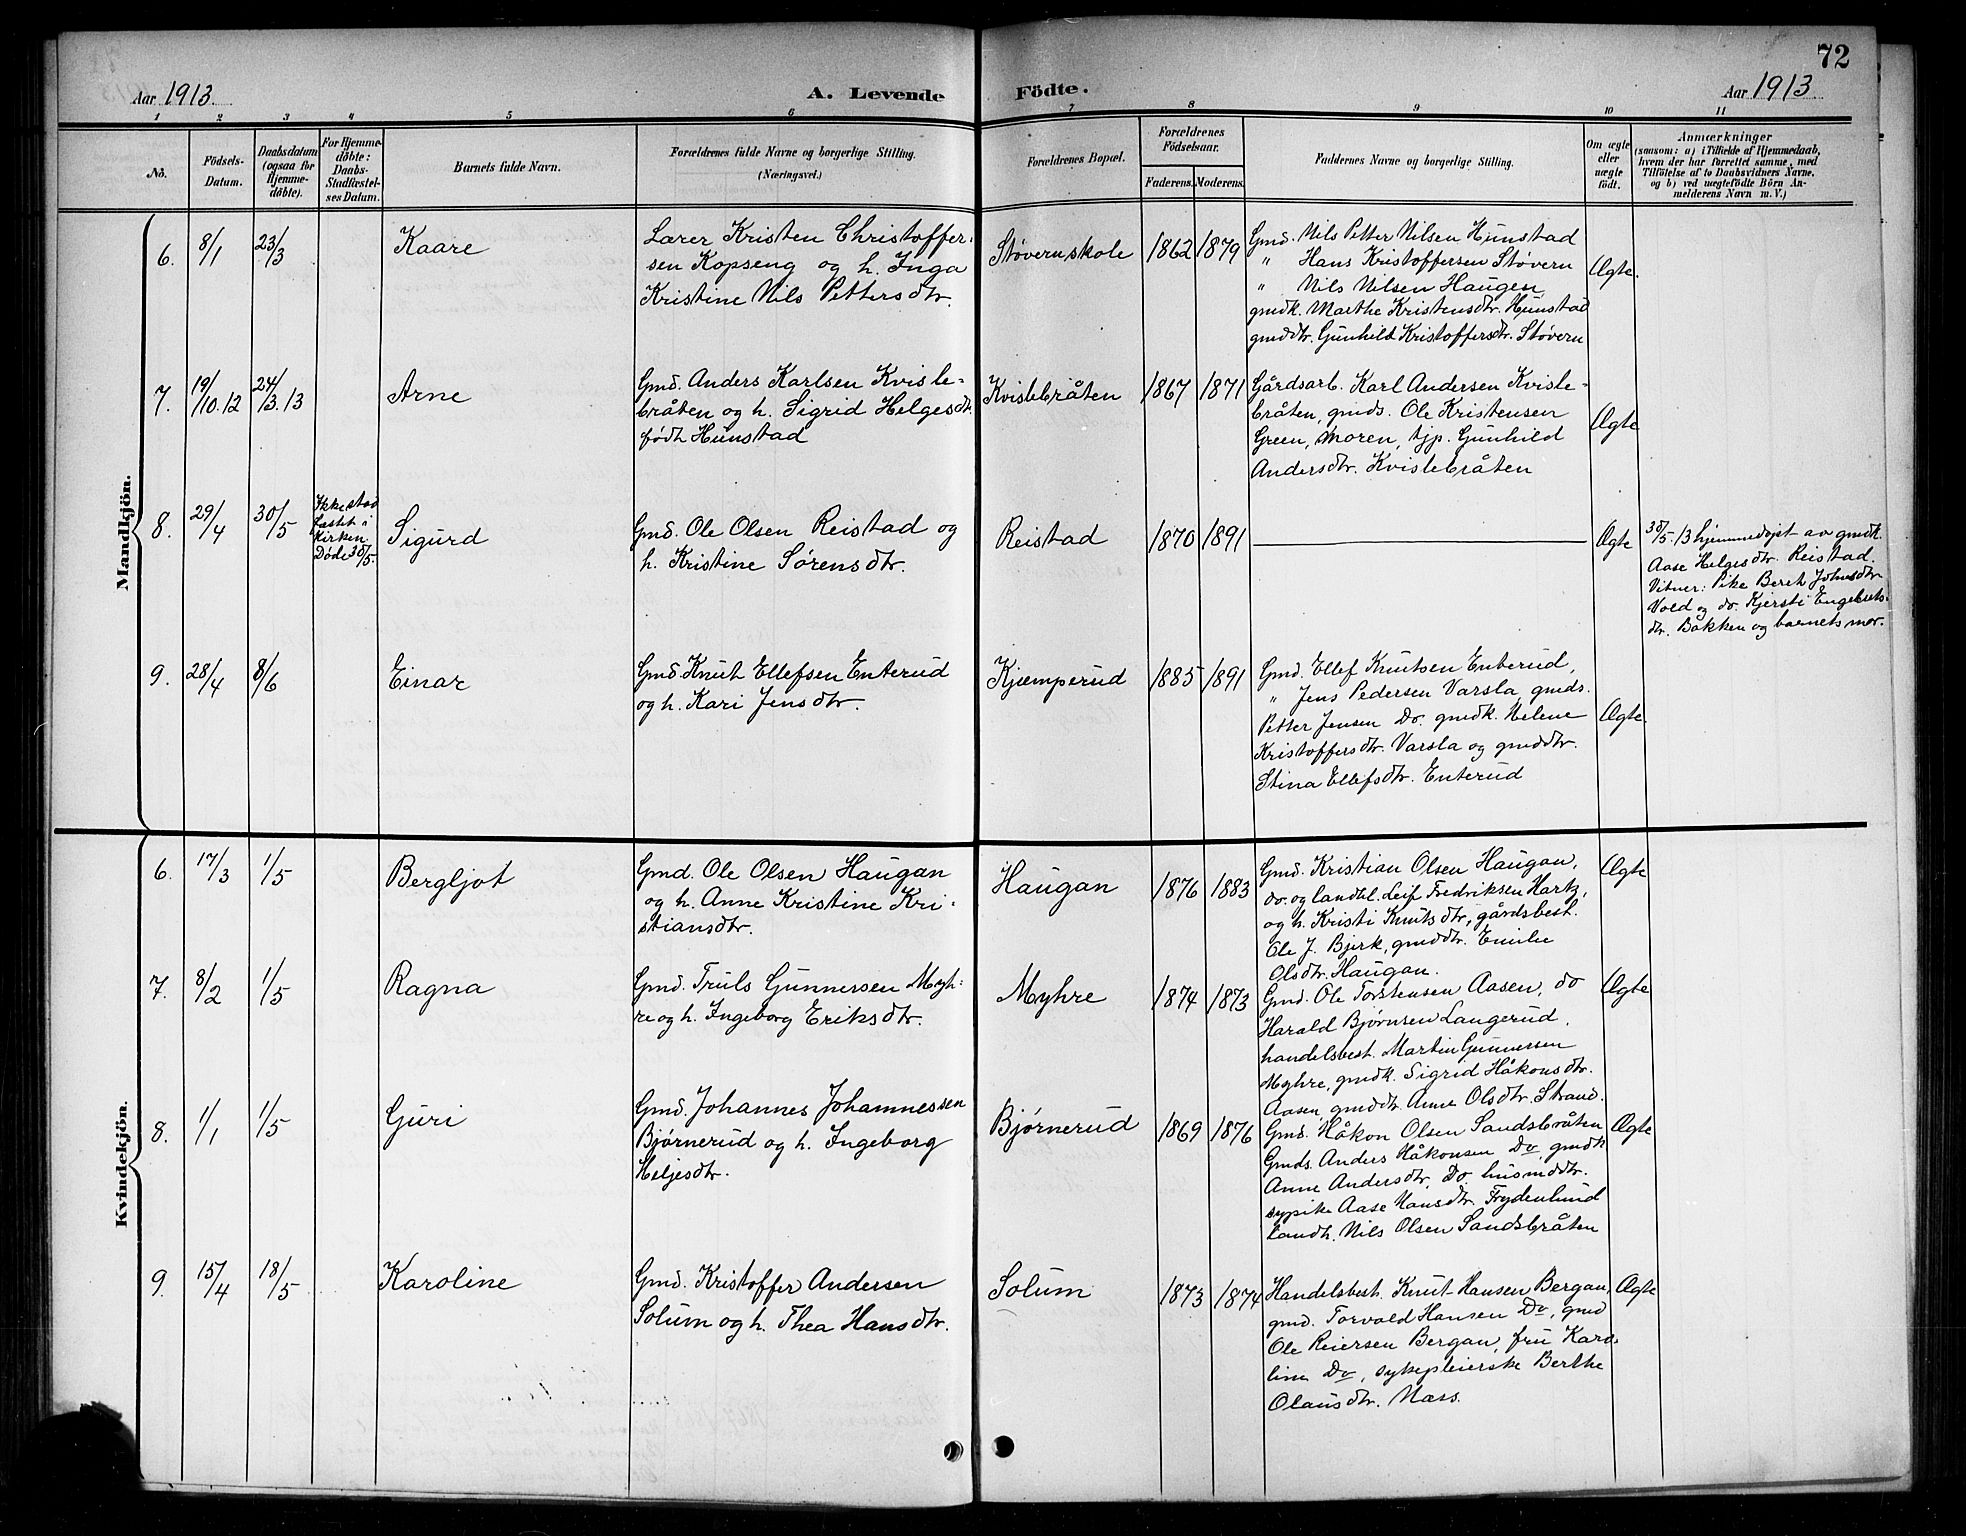 72
Aar 1913.
A. Levende Födte.
Aar 1913
1 2 3 4 5 6 7 8 9 10 11
No.
Födsels-
Datum.
Daabsdatum
(ogsaa for
Hjemme-
döbte).
For Hjemme-
döbte:
Daabs-
Stadfæstel-
ses Datum.
Barnets fulde Navn.
Forældrenes fulde Navne og borgerlige Stilling.
(Næringsvei.)
Forældrenes Bopæl.
Forældrenes
Födselsaar.
Faderens. Moderens.
Faddernes Navne og borgerlige Stilling.
Om ægte
eller
uægte
födt.
Anmærkninger
(saasom: a) i Tilfælde af Hjemmedaab,
hvem der har forrettet samme, med
Tilföielse af to Daabsvidners Navne,
og b) ved uægtefödte Börn An-
melderens Navn m. V.)
Mandkjön.
6. 8/1 23/3
Kaare
Lærer Kristen Christoffer-
sen Kopseng og h. Inga
Kristine Nils Pettersdtr.
Støvernskole
1862 1879
Gmd. Nils Petter Nilsen Hunstad
" Hans Kristoffersen Støvern
" Nils Nilsen Haugen
gmdk. Marthe Kristensdtr. Hunstad
gmddtr. Gunhild Kristoffersdtr. Støvern
Ægte.
7. 19/10.12 24/3.13
Arne
Gmd. Anders Karlsen Kvisle-
bråten og h. Sigrid Helgesdtr.
født Hunstad
Kvislebråten
1867 1871
Gårdsarb. Karl Andersen Kvisle-
bråten, gmds. Ole Kristensen
Green, Moren, tjp. Gunhild
Andersdtr. Kvislebråten
Ægte
8. 29/4 30/5
Ikke stad
fæstet i
kirken.
Døde 30/5.
Sigurd
Gmd. Ole Olsen Reistad og
h. Kristine Sørensdtr.
Reistad
1870 1891
Ægte
30/5.13 hjemmedøpt av gmdk.
Aase Helgesdtr. Reistad.
Vitner: Pike Beret Johnsdtr
Vold og do. Kjersti Engebrets-
dtr. Bakken og barnets mor.
9. 28/4 8/6
Einar
Gmd Knut Ellefsen Enterud
og h. Kari Jensdtr.
Kjæmperud
1885 1891
Gmd. Ellef Knutsen Enterud,
" Jens Pedersen Varsla, gmds.
Petter Jensen Do. gmdk. Helene
Kristoffersdtr. Varsla og gmddtr.
Stina Ellefsdtr. Enterud
Ægte.
Kvindekjön.
6. 17/3 1/5
Bergljot
Gmd. Ole Olsen Haugan
og h. Anne Kristine Kri-
stiansdtr.
Haugan
1876 1883
Gmd. Kristian Olsen Haugan,
do. og landhl. Leif Fredriksen Hartz,
og h. Kristi Knutsdtr, gårdsbest.
Ole J. Bjerk, gmddtr. Emilie
Olsdtr. Haugan.
Ægte
7. 8/2 1/5
Ragna
Gmd. Truls Gunnersen Myh-
re og h. Ingeborg Eriksdtr.
Myhre
1874 1873
Gmd. Ole Torstensen Aasen, do
Harald Bjørnsen Langerud,
handelsbest. Martin Gunnersen
Myhre, gmdk. Sigrid Håkonsdtr.
Aasen, gmddtr. Anne Olsdtr. Strand.
Ægte
8. 1/1 1/5
Guri
Gmd. Johannes Johannessen
Bjørnerud og h. Ingeborg
Heljesdtr.
Bjørnerud
1869 1876
Gmd. Håkon Olsen Sandsbråten
Gmds. Anders Håkonsen Do, gmdk
Anne Andersdtr. Do. husmddtr.
sypike Aase Hansdtr Frydenlund
landh. Nils Olsen Sandsbråten
Ægte
9. 15/4 18/5
Karoline
Gmd. Kristoffer Andersen
Solum og h. Thea Hansdtr.
Solum
1873 1874
Handelsbest. Knut Hansen Bergan,
gmd. Torvald Hansen Do, gmd
Ole Reiersen Bergan, fru Karo-
line Do, sykepleierske Berthe
Olausdtr. Næss.
Ægte